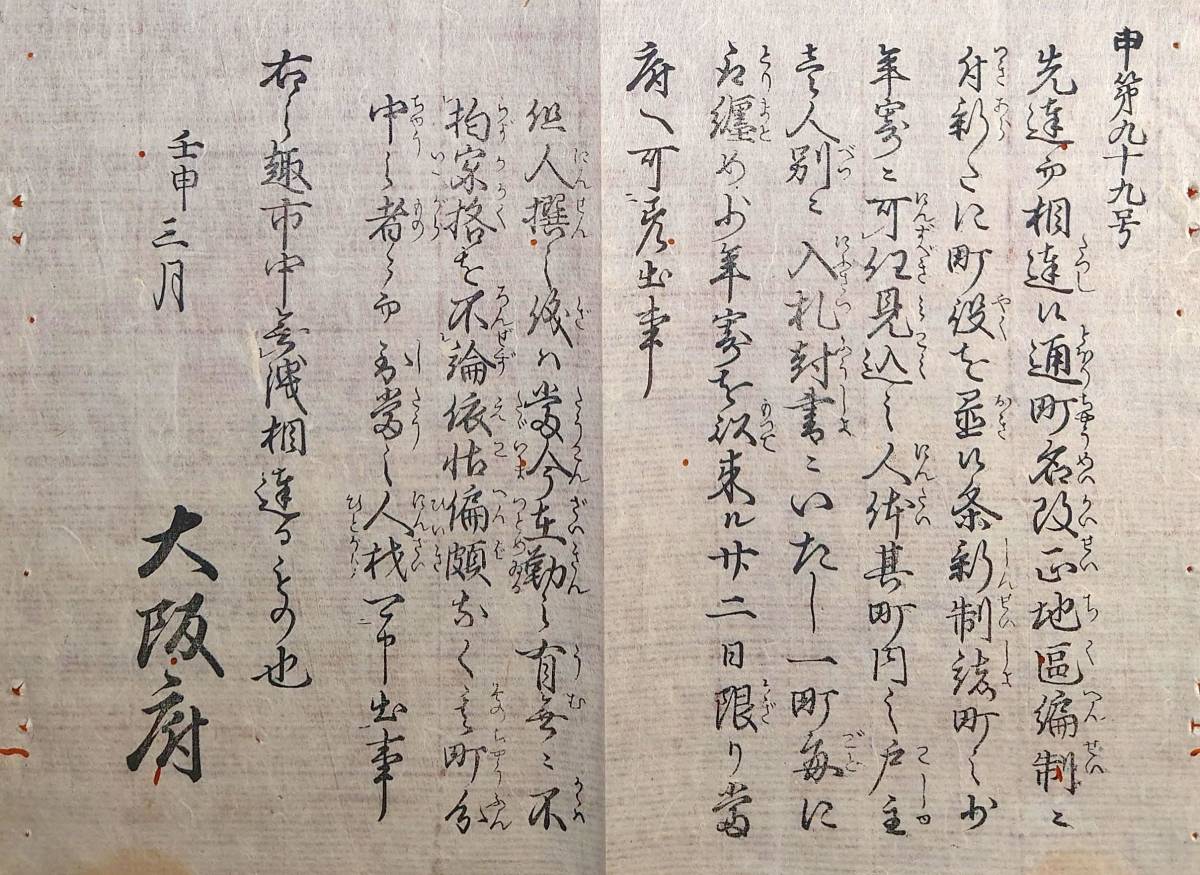 申第九十九号
先達而相達候通町名改正地區編制ニ
付新タニ町役を置候条新制諸町之少
年寄ニ可任見込之人体其町内之戸主
壱人別ニ入札封書ニいたし一町毎に
取纏め少年寄を以来ル廿二日限り當
府へ可差出事
但人撰之儀ハ當今在勤之有無ニ不
拘家格を不論依怙偏頗なく其町分
中之者ニ而到當之人材可申出事
右之趣市中無洩相達るもの也
壬申三月
大阪府